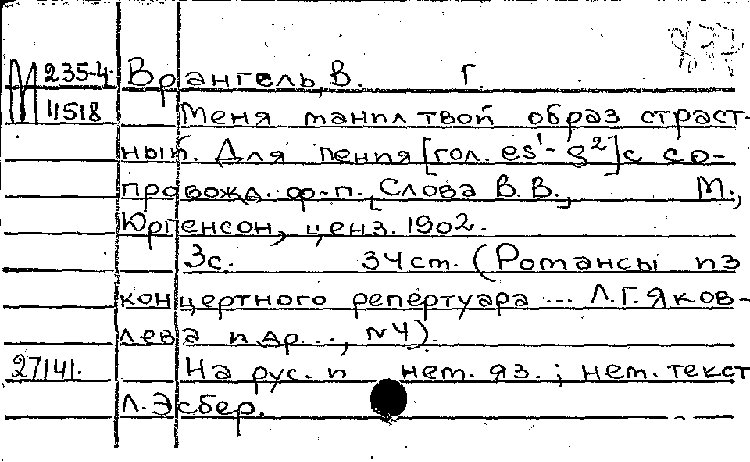 М 235-4 Врангель, В. Г.
11518 Меня манил твой образ страст-
ный. Для пения [гол. es¹-g²] с со-
провожд. ф-п. Слова В.В. М.,
Юргенсон, ценз. 1902.
3с. 34см. (Романсы из
концертного репертуара ... Л.Г. Яков-
лева и др. .., №4).
27141. На рус. и нем. яз.; нем. текст
Л. Эсбер.